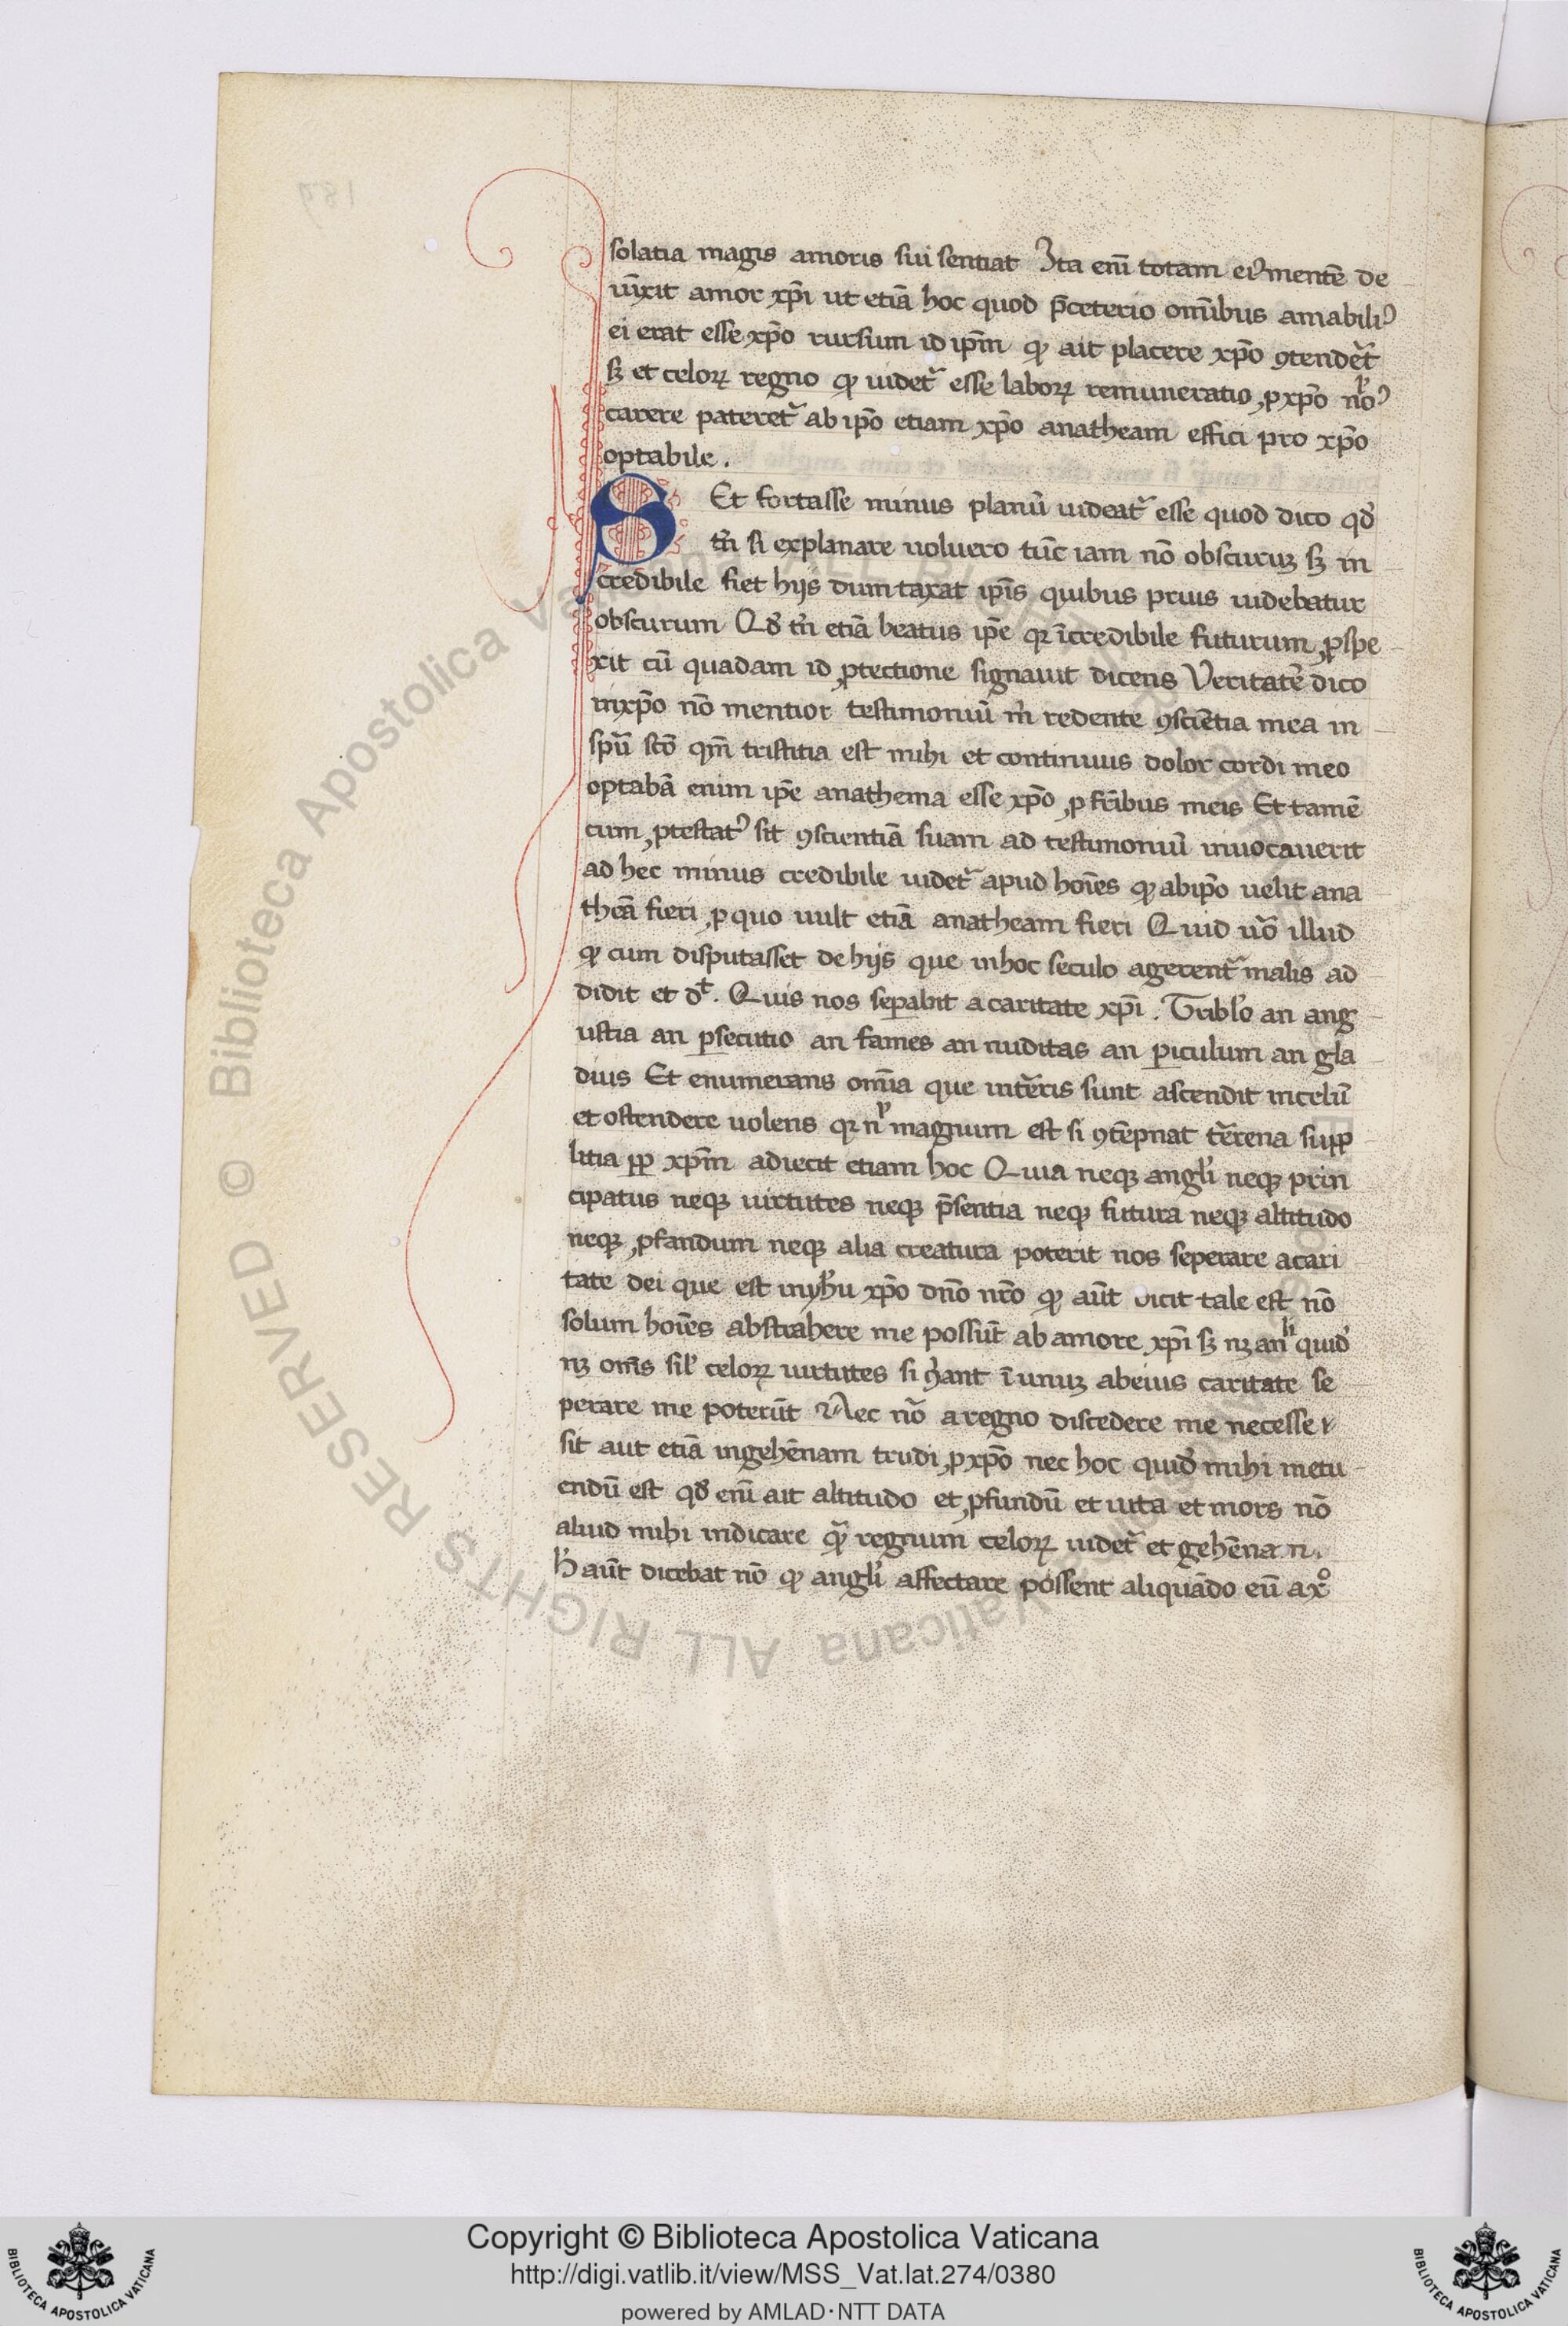 solatia magis amoris sui sentiat Ita eni̅ totam eiꝰ mente̅ de
uīxit amor xp̅i ut etia̅ hoc quod p̅ceterio om̅ibus amabiliꝰ
ei erat esse xp̅o rursum id ip̅m qͦ ait placere xp̅o ꝯtendet᷑
sꝫ et celoꝝ regno qͦ uidet᷑ esse laboꝝ remuneratio, ꝓ xp̅o
carere pateret᷑ ab ip̅o etiam xp̅o anatheam effici pro xp̅o
optabile.
SEt fortasse minus planu̅ uideat᷑ esse quod dico qd̕
tn̅ si explanare uoluero tu̅c iam no̅ obscuruꝫ sꝫ in
credibile fiet hijs dum taxat ip̅is quibus prius uidebatur
obscurum Qd̕ tn̅ etia̅ beatus ip̅e qꝛ i̅credibile futurum ꝓspe
xit cu̅ quadam id ꝓtectione signauit dicens Veritate̅ dico
in xp̅o no̅ mentior testimoniu̅ m̅ redente ꝯscie̅tia mea in
spu̅ sc̅o qm̅ tristitia est mihi et continuus dolor cordi meo
optaba̅ enim ip̅e anathema esse xp̅o ꝓ fr̅ibus meis Et tame̅
cum ꝓtestatꝰ sit ꝯscientia̅ suam ad testimoniu̅ inuocauerit
ad hec minus credibile uidet᷑ apud hoi̅es qͦ ab ip̅o uelit ana
thea̅ fieri ꝓ quo uult etia̅ anatheam fieri Quid uo̅ illud
qͦ cum disputasset de hijs que in hoc seculo agerent᷑ malis ad
didit et d᷑t. Quis nos sepabit a caritate xp̅i. Tribl̕o an ang
ustia an ꝑsecutio an fames an nuditas an ꝑiculum an gla
dius Et enumerans om̅ia que int̅ris sunt ascendit in celu̅
et ostendere uolens qꝛ magnum est si ꝯte̅pnat te̅rena supp
litia ꝓp xp̅m adiecit etiam hoc Quia neqꝫ angl̕i neqꝫ prin
cipatus neqꝫ uirtutes neqꝫ p̅sentia neqꝫ futura neqꝫ altitudo
neqꝫ ꝓfandum neqꝫ alia creatura poterit nos seperare a cari
tate dei que est in yh̅u xp̅o dn̅o nr̅o qͦ au̅t dicit tale est no̅
solum hoi̅es abstrahere me possu̅t ab amore xp̅i sꝫ nꝫ quid̕
nꝫ om̅s sil̕ celoꝝ uirtutes si i̅ unuꝫ ab eius caritate se
perare me poteru̅t Nec no̅ a regno discedere me necesse
sit aut etia̅ in gehe̅nam trudi ꝓ xp̅o nec hoc quid̕ mihi metu
endu̅ est qd̕ eni̅ ait altitudo et ꝓfundu̅ et uita et mors no̅
aliud mihi indicare qͣ regnum celoꝝ uidet᷑ et gehe̅nan.
h̕ au̅t dicebat no̅ qͦ angl̕i affectare possent aliqua̅do eu̅ a xͦ
Copyright © Biblioteca Apostolica Vaticana
http://digi.vatlib.it/view/MSS_Vat.lat.274/0380
powered by AMLAD·NTT DATA
BIBLIOTECA APOSTOLICA VATICANA
BIBLIOTECA APOSTOLICA VATICANA
Biblioteca Apostolica Vaticana ALL RIGHTS RESERVED ©